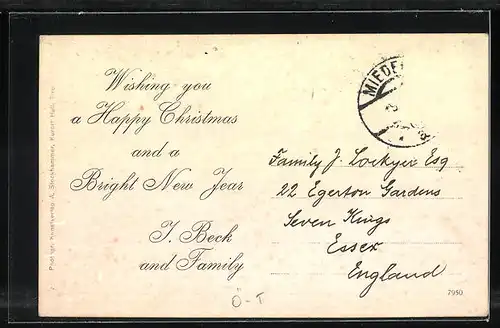 Wishing you
a Happy Christmas
and a
Bright New Year
J. Beck
and Family
MIEDE
Family J. Lockyer Esq
22 Egerton Gardens
Seven Kings
Essex
England
7950
Ö-T
A. Stockhammer, Kunst Hall, Tirol